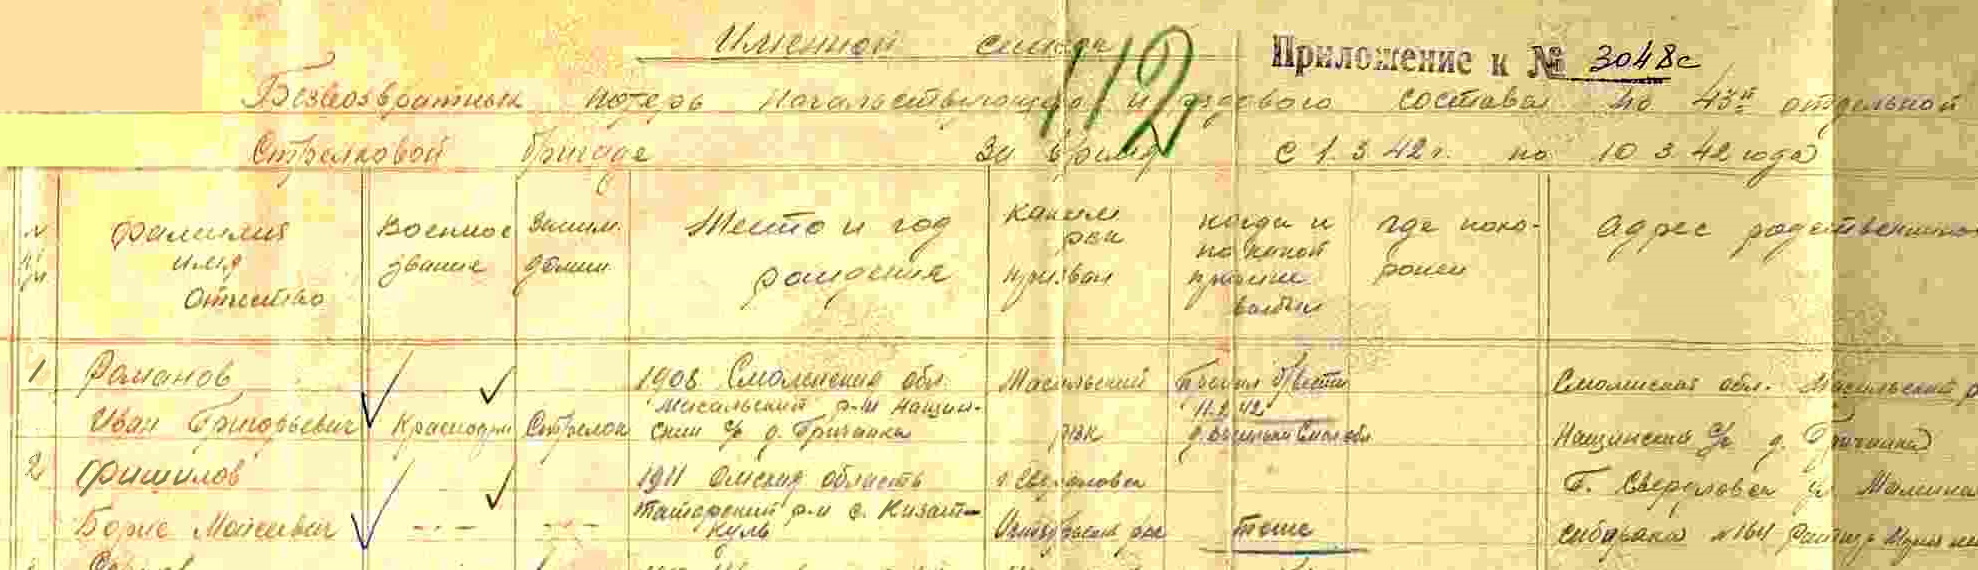 Именной список
112
Приложение к № 3048с
Безвозвратных потерь Начальствующего и рядового состава по 43й отдельной
Стрелковой бригаде за время с 1.3.42г. по 10.3.42 года
N п/п
Фамилия имя Отчество
Военное звание
Заним. должн
Место и год рождения
каким рвк призван
когда и по какой причине выбыл
где похоронен
Адрес родственников
1 Романов Иван Григорьевич
Красноарм
Стрелок
1908 Смоленская обл.
Масальский р-н
с/с д.
Масальский рвк
Пропал б/вести
11.2.42
Смол обл
Смоленская обл. Масальский р
с/с д.
2
Борис
1911 Омская область
Татарский р-н с. Казат-
куль
г Свердловск
Октябрьским рвк
тоже
Г. Свердловск ул Мамина
сибиряка N 164